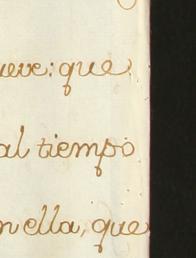 ueve: que
al tiempo
n ella, que